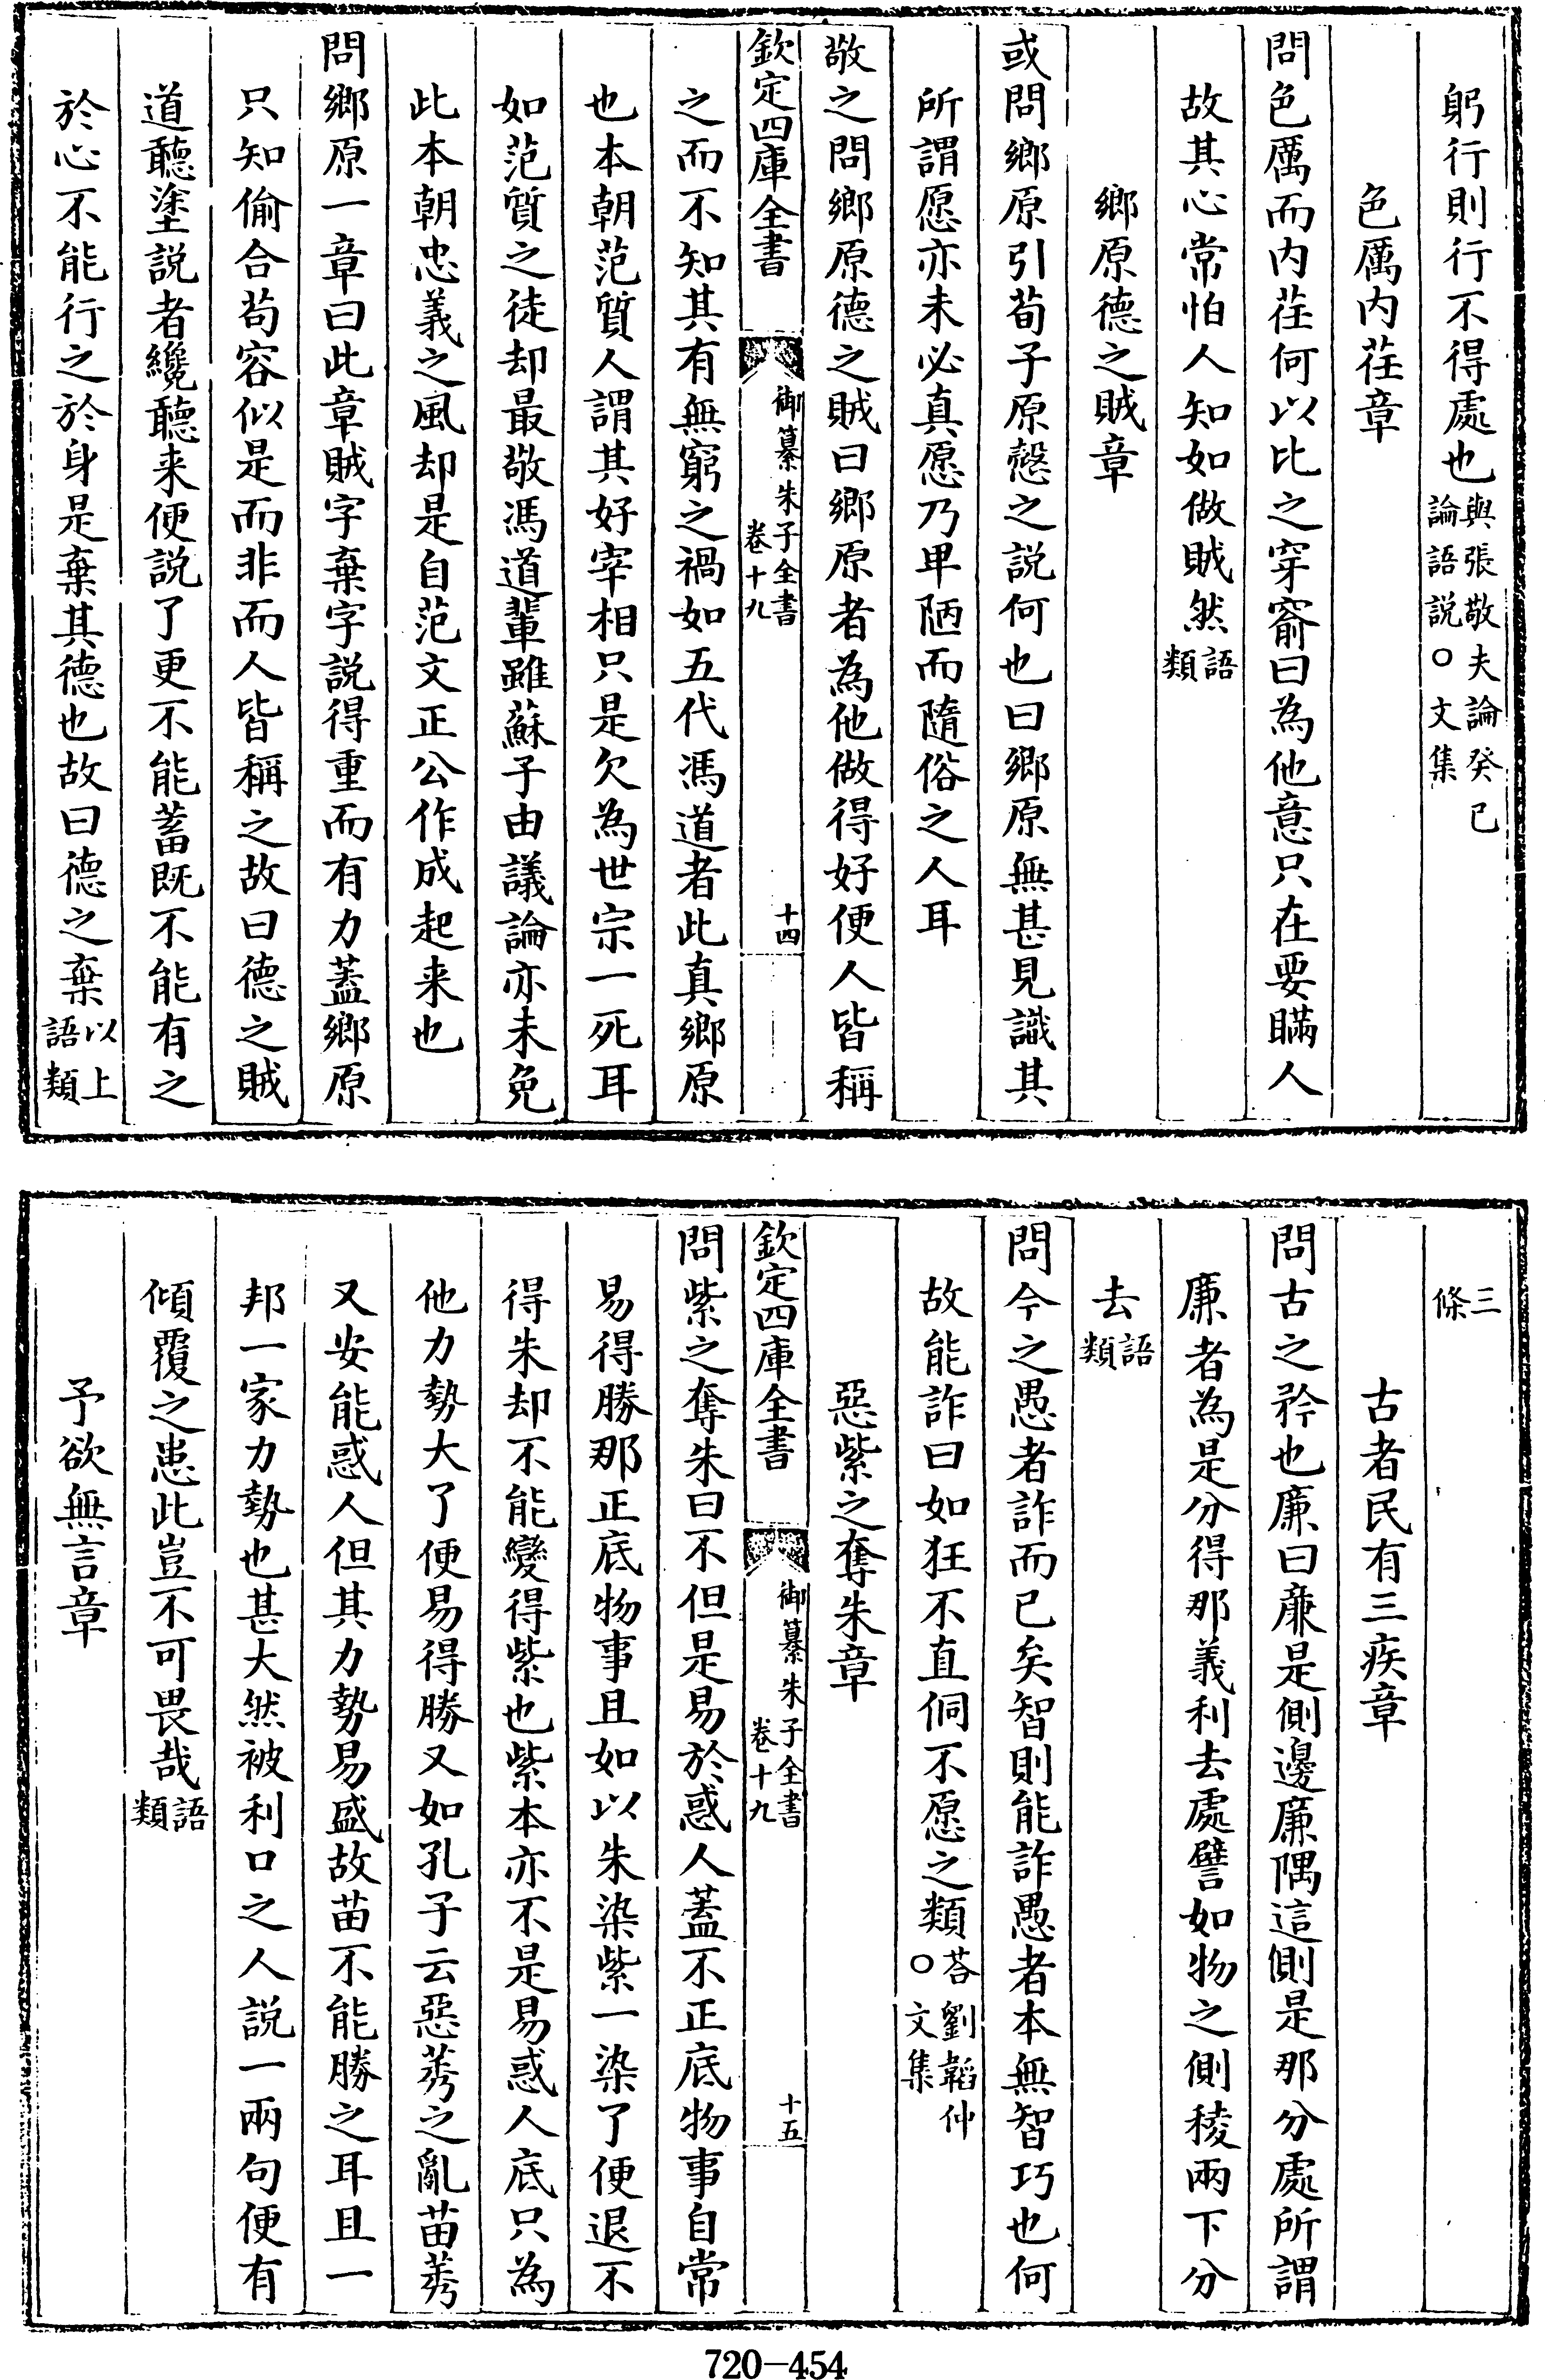 躬行則行不得處也與張敬夫論癸巳論語説○文集
色厲内荏章
問色厲而内荏何以比之穿窬曰為他意只在要瞞人
故其心常怕人知如做賊然語類
鄉原德之賊章
或問鄉原引荀子原慤之説何也曰鄉原無甚見識其
所謂愿亦未必真愿乃卑陋而隨俗之人耳
敬之問鄉原德之賊曰鄉原者為他做得好便人皆稱
欽定四庫全書
御纂朱子全書
卷十九
十四
之而不知其有無窮之禍如五代馮道者此真鄉原
也本朝范質人謂其好宰相只是欠為世宗一死耳
如范質之徒却最敬馮道輩雖蘇子由議論亦未免
此本朝忠義之風却是自范文正公作成起来也
問鄉原一章曰此章賊字棄字説得重而有力蓋鄉原
只知偷合苟容似是而非而人皆稱之故曰德之賊
道聽塗説者纔聽来便説了更不能蓄既不能有之
於心不能行之於身是棄其德也故曰德之棄以上語類
三條
古者民有三疾章
問古之矜也廉曰廉是側邊廉隅這側是那分處所謂
廉者為是分得那義利去處譬如物之側稜兩下分
去語類
問今之愚者詐而已矣智則能詐愚者本無智巧也何
故能詐曰如狂不直侗不愿之類荅劉韜仲○文集
惡紫之奪朱章
欽定四庫全書
御纂朱子全書
卷十九
十五
問紫之奪朱曰不但是易於惑人蓋不正底物事自常
易得勝那正底物事且如以朱染紫一染了便退不
得朱却不能變得紫也紫本亦不是易惑人底只為
他力勢大了便易得勝又如孔子云惡莠之亂苗莠
又安能惑人但其力勢易盛故苗不能勝之耳且一
邦一家力勢也甚大然被利口之人説一兩句便有
傾覆之患此豈不可畏哉語類
予欲無言章
720-454